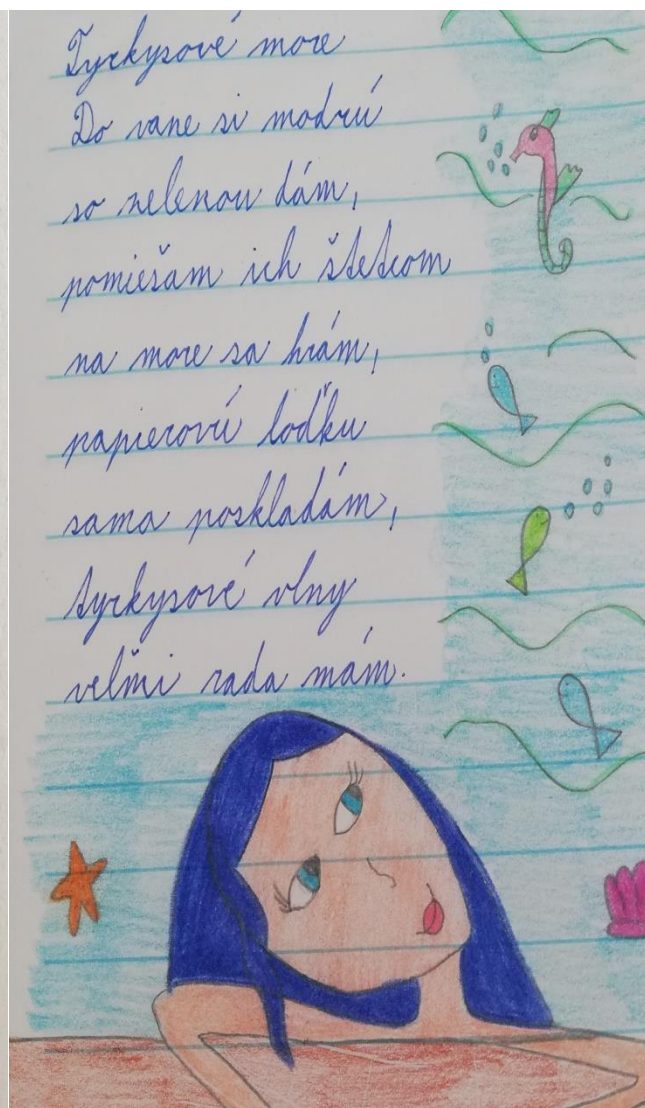 Tyrkysové more
Do vane si modrú
so zelenou dám,
pomiešam ich štetcom
na more sa hrám,
papierovú loďku
sama poskladám,
tyrkysové vlny
veľmi rada mám.